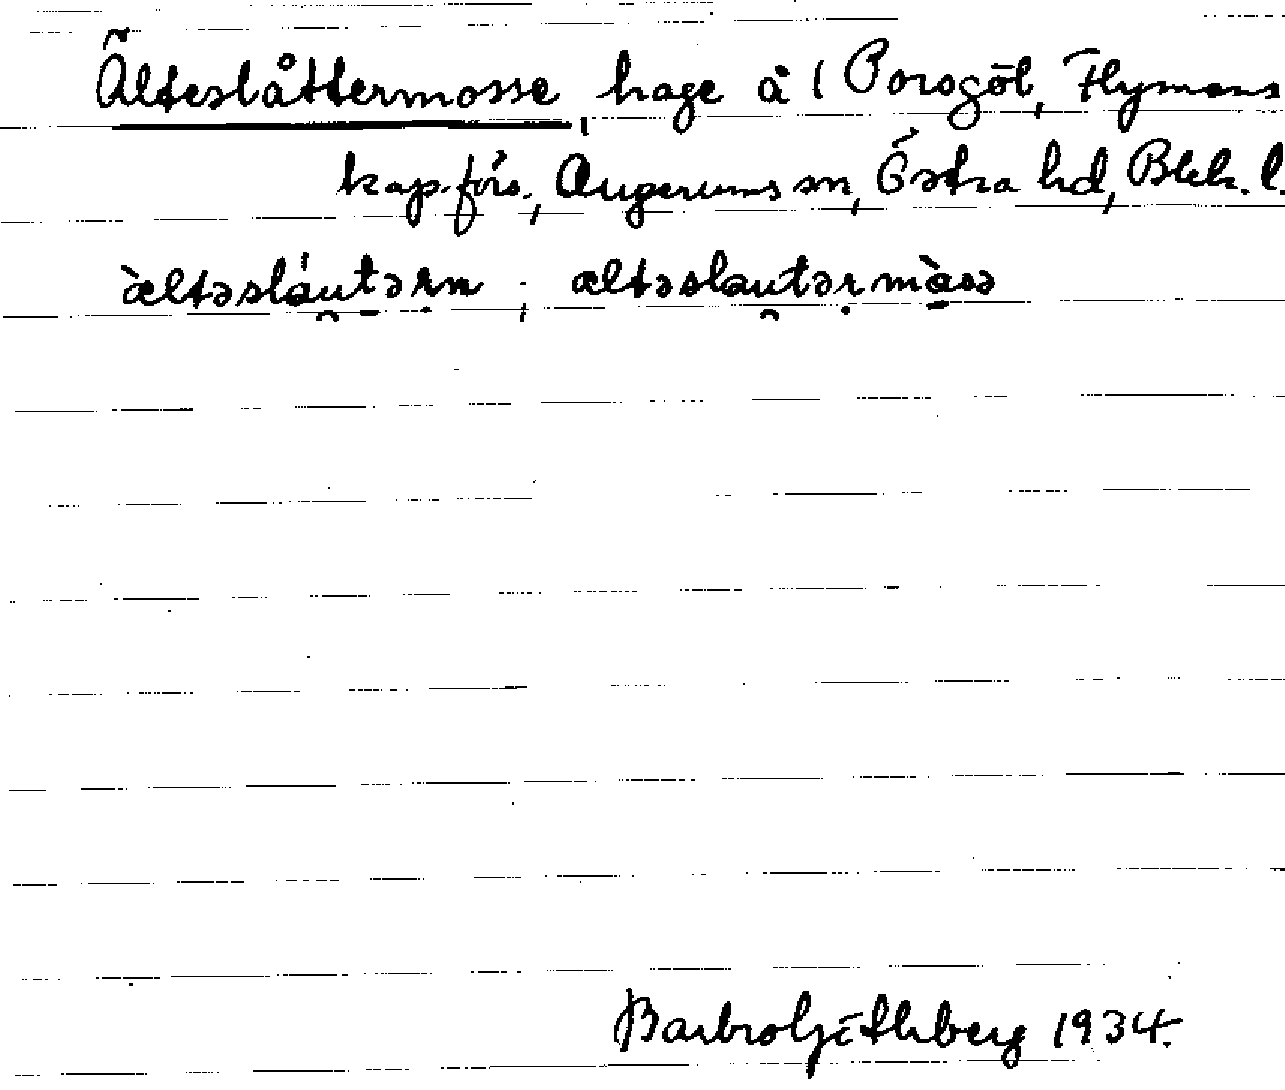 Älteslåttermosse, hage å 1 Porsgöl, Flymens
kap.förs., Augerums sn, Östra hd, Blek. l.
àltəslåutərn ; æltəslautərmàsə
Barbro Göthberg 1934.